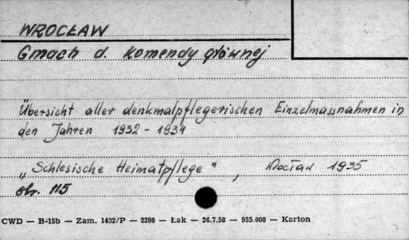 WROCŁAW
Gmach d. Komendy głównej
Übersicht aller denkmalpflegerischen Einzelmassnahmen in
den Jahren 1932 - 1934
„Schlesische Heimatpflege", Wocław 1935
str. 115
CWD — B-15b — Zam. 1402/P — 2398 — Łak — 26.7.58 — 935.000 — Karton